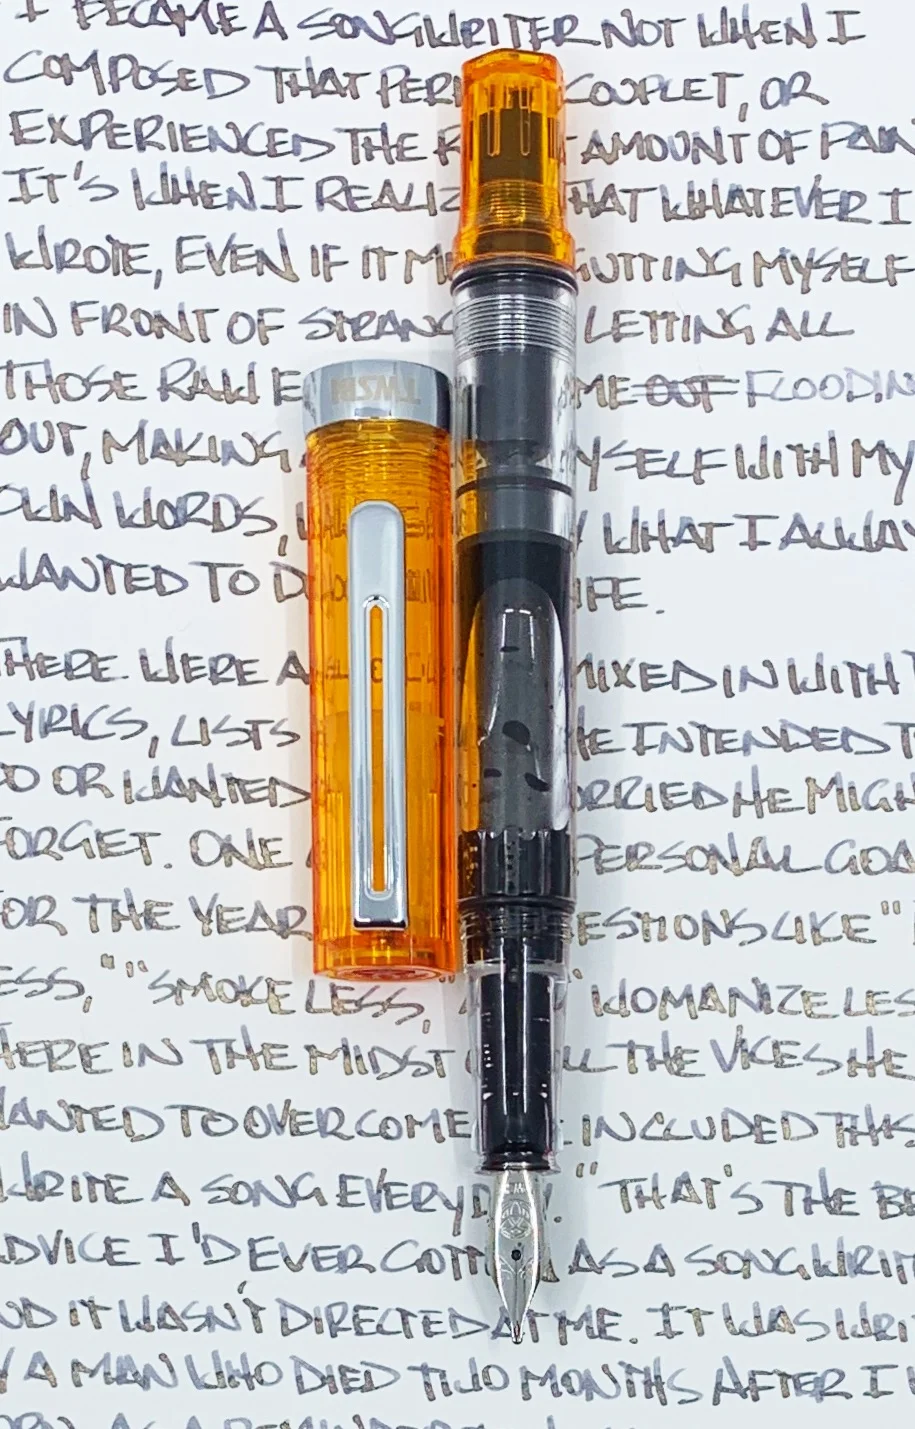 I BECAME A SONGWRITER NOT WHEN I
COMPOSED THAT COUPLET, OR
EXPERIENCED THE AMOUNT OF PAIN
IT'S WHEN I REALIZ HAT WHATEVER I
WROTE, EVEN IF IT ME GUTTING MYSELF
IN FRONT OF STRANG LETTING ALL
THOSE RAW E ME OUT FLOODIN
OUT, MAKING MYSELF WITH MY
OWN WORDS, WHAT I ALWAY
WANTED TO D IFE.
THERE WERE A MIXED IN WITH
LYRICS, LISTS HE INTENDED T
DO OR WANTED ORRIED HE MIGH
FORGET. ONE PERSONAL GOA
FOR THE YEAR ESTIONS LIKE "
ESS," "SMOKE LESS," "WOMANIZE LES
HERE IN THE MIDST LL THE VICES HE
WANTED TO OVERCOME INCLUDED THIS
WRITE A SONG EVERY D ." "THAT'S THE BE
ADVICE I'D EVER GOTT AS A SONGWRIT
ND IT WASN'T DIRECTED AT ME. IT WAS WRI
Y A MAN WHO DIED TWO MONTHS AFTER I
AS A REMINDER
TWSBI